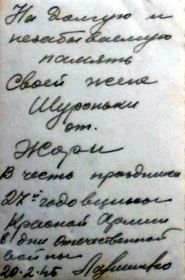 На долгую и
незабываемую
память
Своей жене
Шуроньки
от.
Жоры
В честь праздника
27й годовщины
Красной Армии
в дни отечественной
войны
20-2-45